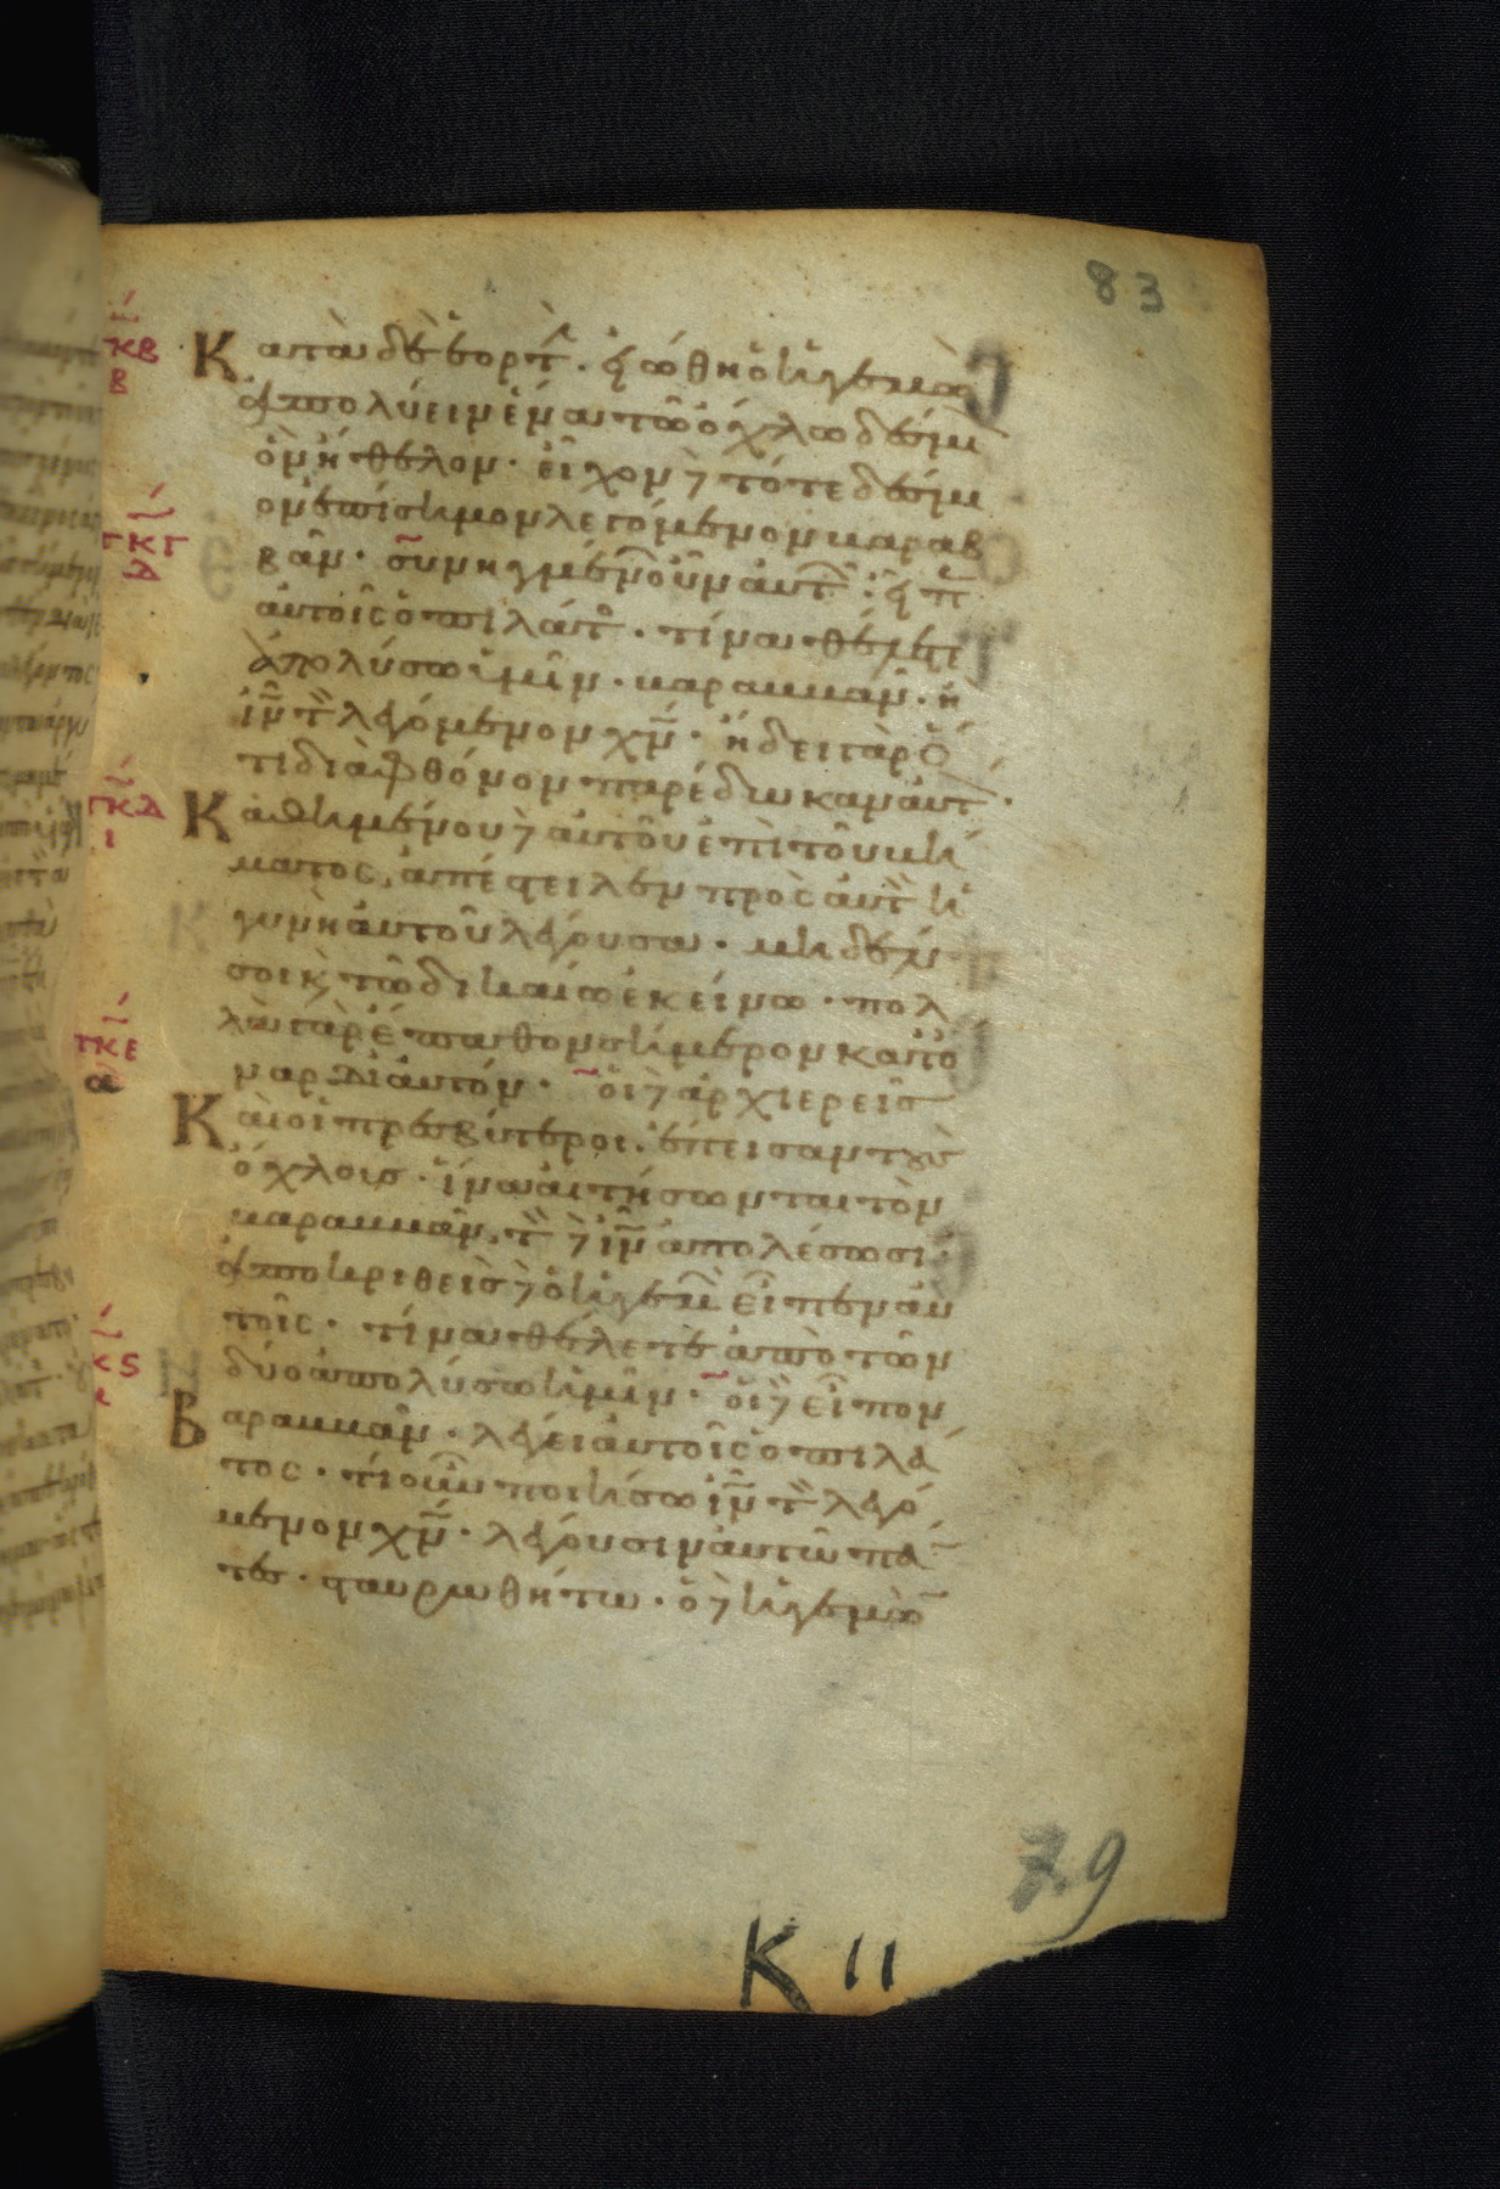 83
Κατὰ δὲ ἑορτ. εἰώθη ὁ ἡγεμὼ
ἀπολύειν ἕνα τῶ ὄχλω δέσμι
ὃν ἤθελον· εἶχον δὲ τότε δέσμι
ον ἐπίσημον λεγόμενον Βαραβ
βᾶν· συνηγμένων οὖν αὐτ εἶπ
αὐτοῖς ὁ πιλάτ. τίνα θέλετε
ἀπολύσω ὑμῖν· βαραββᾶν· ἢ
ἰν τ λεγόμενον χν· ἤδει γὰρ ὅ
τι διὰ φθόνον παρέδωκαν αὐτ·
Καθημένου δὲ αὐτοῦ ἐπὶ τοῦ βή
ματος, ἀπέστειλεν πρὸς αὐτ ἡ
γυνὴ αὐτοῦ λέγουσα· μηδὲν
σοι κ τῶ δικαίω ἐκείνω· πολ
λὰ γὰρ ἔπαθον σήμερον κατ ὄ
ναρ δι αὐτόν· οἱ δὲ ἀρχιερεῖς
Καὶ οἱ πρεσβύτεροι. ἔπεισαν τοὺς
ὄχλοις· ἵνα αἰτήσωνται τὸν
βαραββᾶν, τ δὲ ἰν ἀπολέσωσι·
ἀποκριθεὶς δὲ ὁ ἡγεμ εἶπεν αὐ
τοῖς· τίνα θέλετε ἀπὸ τῶν
δύο ἀπολύσω ἡμῖν· οἱ δὲ εἶπον
Βαραββᾶν· λέγει αὐτοῖς ὁ πιλά
τος· τί οὖν ποιήσω ἰν τ λεγό
μενον χν· λέγουσιν αὐτῶ πά
τες· σταυρωθήτω· ὁ δὲ ἡγεμὼ
79
K 11